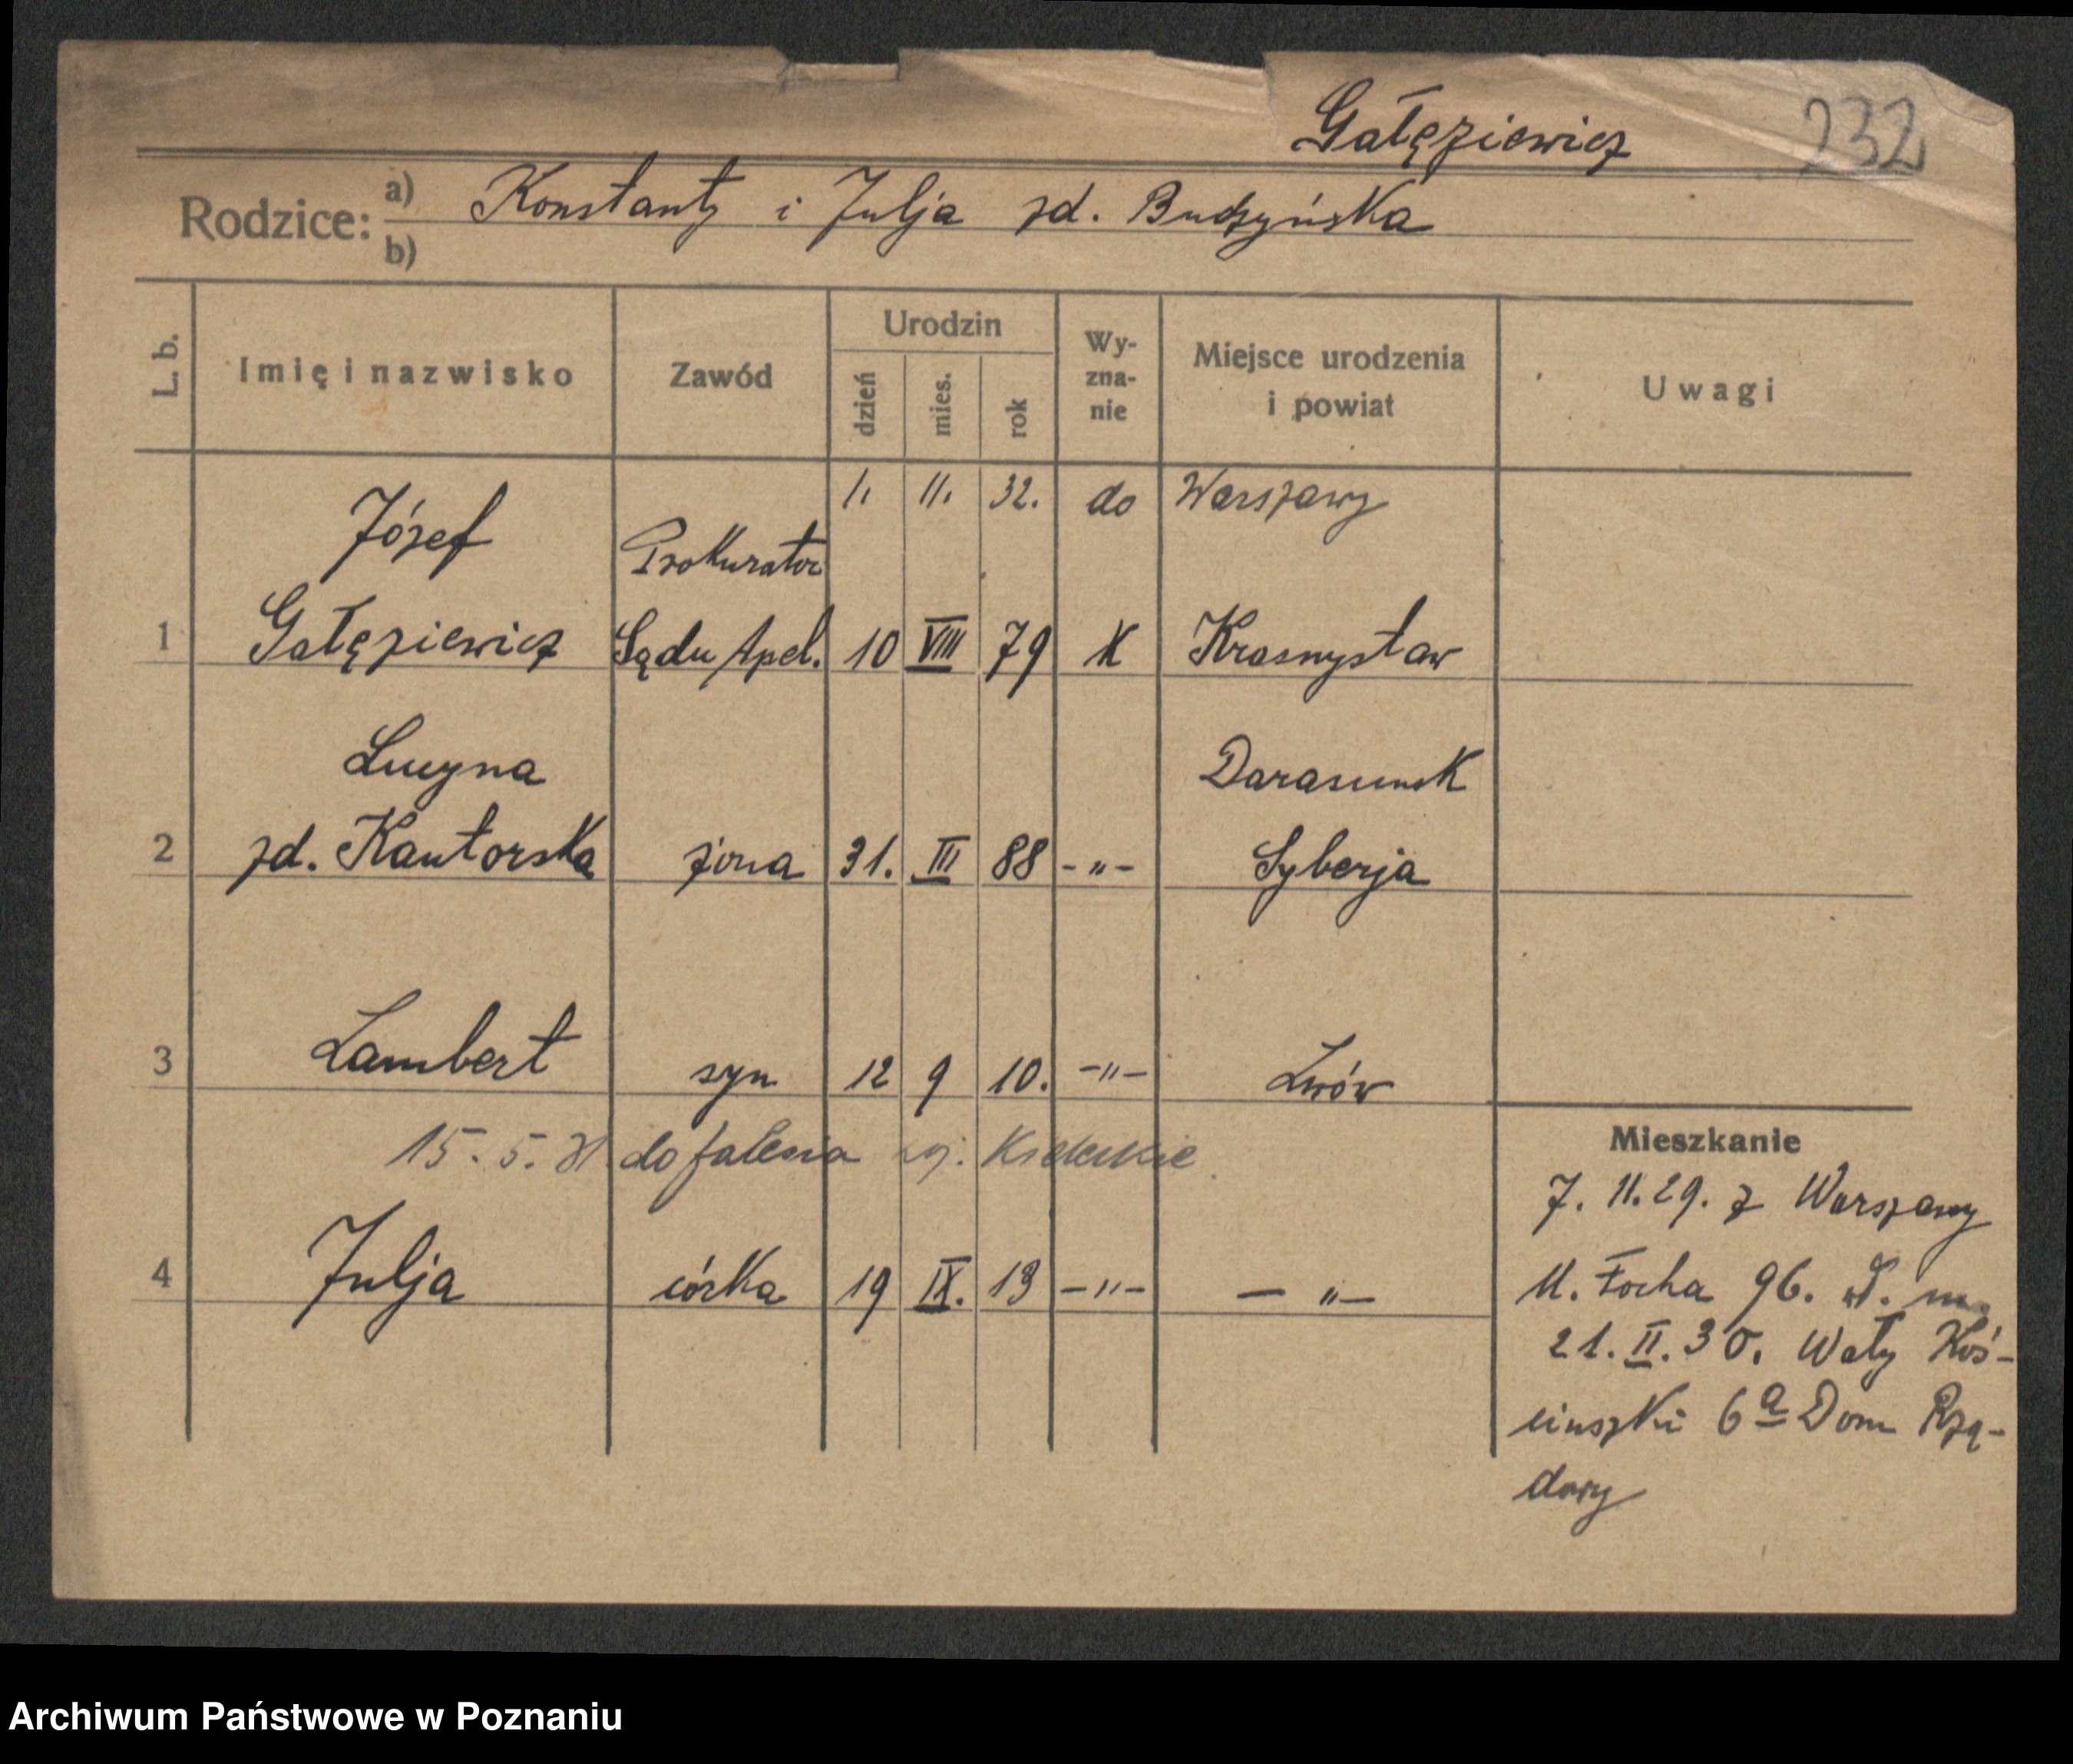 Gałęziewicz 232
Rodzice: a) Konstanty i Julja zd. Budzyńska
b)
L. b. Imię i nazwisko Zawód Urodzin dzień mies. rok Wy-zna-nie Miejsce urodzenia i powiat Uwagi
1. II. 32. do Warszawy
Józef Prokurator
1 Gałęziewicz Sądu Apel. 10 VIII 79 K Krasnystaw
Lucyna Darasunsk
2 zd. Kantorska żona 31. III 88 -"- Syberja
3 Lambert syn 12 9 10. -"- Lwów
15. 5. 31 do
Mieszkanie
4 Julja córka 19 IX. 13 -"- - "-
7. 11. 29. z Warszawy
Ul. Focha 96. w. m.
21. II. 30. Wały Koś-
ciuszki 6a Dom Rzą-
dowy
Archiwum Państwowe w Poznaniu